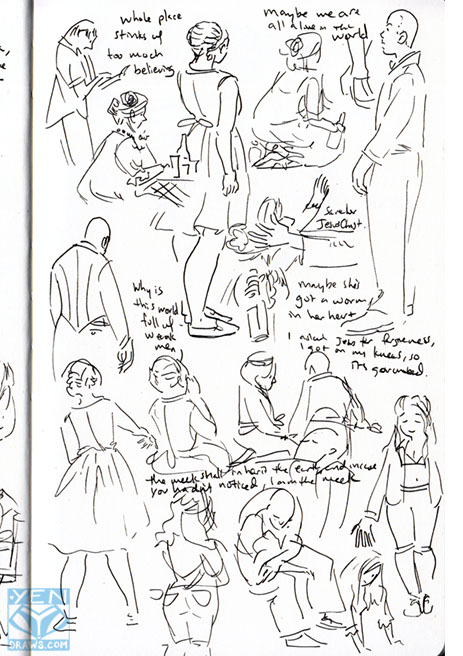 whole place
stinks of
too much
believing
maybe we are
all alone in the
world
JesusChrist.
maybe she's
got a worm
in her heart
Why is
this world
full of
weak
men
I asked Joe for forgiveness,
I got on my knees, so
I'm grounded.
the meek shall inherit the earth and incase
you hadn't noticed I am the meek
YEN
DRAWS.COM